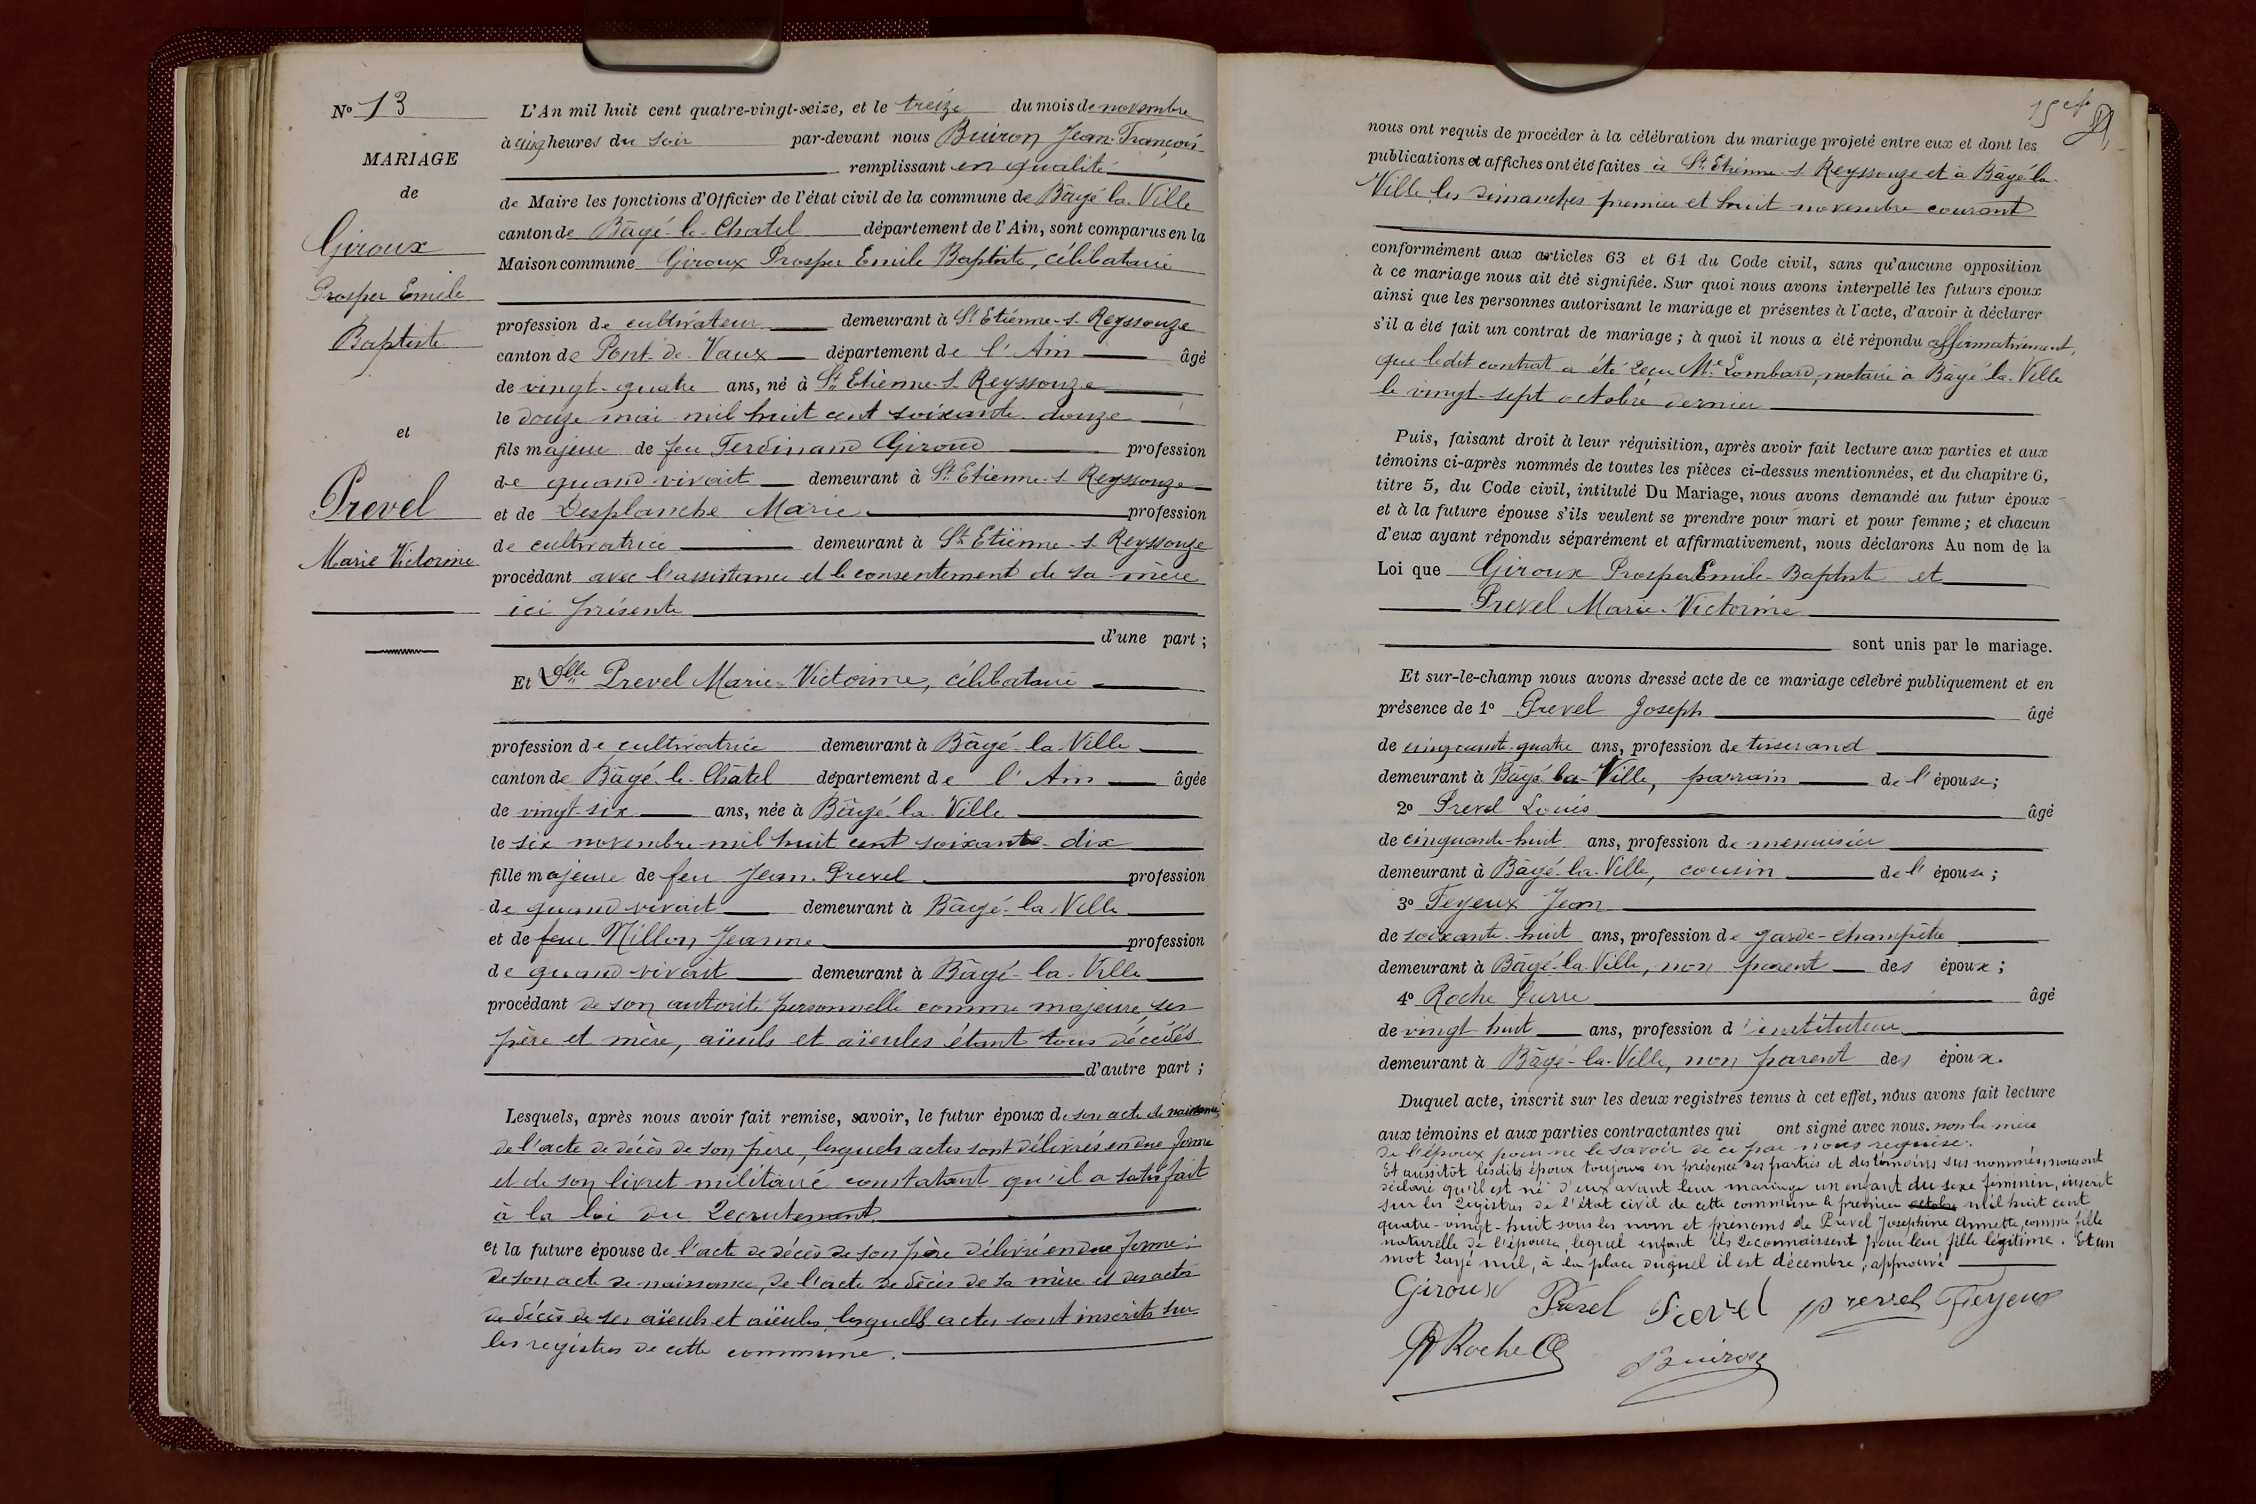 N° 13
MARIAGE
de
Giroux
Prosper Emile
Baptiste
et
Prevel
Marie Victorine
L'An mil huit cent quatre-vingt-seize, et le treize du mois de novembre
à cinq heures du soir par-devant nous Buiron Jean-François
remplissant en qualité
de Maire les fonctions d'Officier de l'état civil de la commune de Bâgé-la-Ville
canton de Bâgé-le-Chatel département de l'Ain, sont comparus en la
Maison commune Giroux Prosper Emile Baptiste, célibataire
profession de cultivateur demeurant à St Etienne-s-Reyssouze
canton de Pont-de-Vaux département de l'Ain âgé
de vingt-quatre ans, né à St Etienne-s-Reyssouze
le douze mai mil huit cent soixante-douze
fils majeur de feu Ferdinand Giroud profession
de quand vivait demeurant à St Etienne-s-Reyssouze
et de Desplanche Marie profession
de cultivatrice demeurant à St Etienne-s-Reyssouze
procédant avec l'assistance et le consentement de sa mère
ici présente
d'une part ;
Et Dlle Prevel Marie-Victorine, célibataire
profession de cultivatrice demeurant à Bâgé-la-Ville
canton de Bâgé-le-Châtel département de l'Ain âgée
de vingt-six ans, née à Bâgé-la-Ville
le six novembre mil huit cent soixante-dix
fille majeure de feu Jean Prevel profession
de quand vivait demeurant à Bâgé-la-Ville
et de feue Nillon Jeanne profession
de quand vivait demeurant à Bâgé-la-Ville
procédant de son autorité personnelle comme majeure, ses
père et mère, aïeuls et aïeules étant tous décédés
d'autre part ;
Lesquels, après nous avoir fait remise, savoir, le futur époux de son acte de naissance,
de l'acte de décès de son père, lesquels actes sont délivrés en due forme
et de son livret militaire constatant qu'il a satisfait
à la loi du recrutement.
et la future épouse de l'acte de décès de son père délivré en due forme ;
de son acte de naissance, de l'acte de décès de sa mère et des actes
de décès de ses aïeuls et aïeules, lesquels actes sont inscrits sur
les registres de cette commune.
nous ont requis de procéder à la célébration du mariage projeté entre eux et dont les
publications et affiches ont été faites à St Etienne-s-Reyssouze et à Bâgé-la-
Ville les dimanches premier et huit novembre courant
conformément aux articles 63 et 64 du Code civil, sans qu'aucune opposition
à ce mariage nous ait été signifiée. Sur quoi nous avons interpellé les futurs époux
ainsi que les personnes autorisant le mariage et présentes à l'acte, d'avoir à déclarer
s'il a été fait un contrat de mariage ; à quoi il nous a été répondu affirmativement,
que ledit contrat a été reçu Me Lombard, notaire à Bâgé-la-Ville
le vingt-sept octobre dernier
Puis, faisant droit à leur réquisition, après avoir fait lecture aux parties et aux
témoins ci-après nommés de toutes les pièces ci-dessus mentionnées, et du chapitre 6,
titre 5, du Code civil, intitulé Du Mariage, nous avons demandé au futur époux
et à la future épouse s'ils veulent se prendre pour mari et pour femme ; et chacun
d'eux ayant répondu séparément et affirmativement, nous déclarons Au nom de la
Loi que Giroux Prosper Emile-Baptiste et
Prevel Marie-Victorine
sont unis par le mariage.
Et sur-le-champ nous avons dressé acte de ce mariage célébré publiquement et en
présence de 1° Prevel Joseph âgé
de cinquante-quatre ans, profession de tisserand
demeurant à Bâgé-la-Ville, parrain de l'épouse ;
2° Prevel Louis âgé
de cinquante-huit ans, profession de menuisier
demeurant à Bâgé-la-Ville, cousin de l'épouse ;
3° Feyeux Jean
de soixante-huit ans, profession de garde-champêtre
demeurant à Bâgé-la-Ville, non parent des époux ;
4° Roche Pierre âgé
de vingt-huit ans, profession d'instituteur
demeurant à Bâgé-la-Ville, non parent des époux.
Duquel acte, inscrit sur les deux registres tenus à cet effet, nous avons fait lecture
aux témoins et aux parties contractantes qui ont signé avec nous. non la mère
de l'époux pour ne le savoir de ce par nous requise.
Et aussitôt lesdits époux toujours en présence des parties et des témoins sus nommés, nous ont
déclaré qu'il est né d'eux avant leur mariage un enfant du sexe féminin, inscrit
sur les registres de l'état civil de cette commune le premier octobre mil huit cent
quatre-vingt-huit sous les nom et prénoms de Prevel Josephine Annette, comme fille
naturelle de l'épouse, lequel enfant ils reconnaissent pour leur fille légitime. Et un
mot rayé nul, à la place duquel il est décembre, approuvé
Giroux Prevel Prevel prevel Feyeux
P Roche Buiron